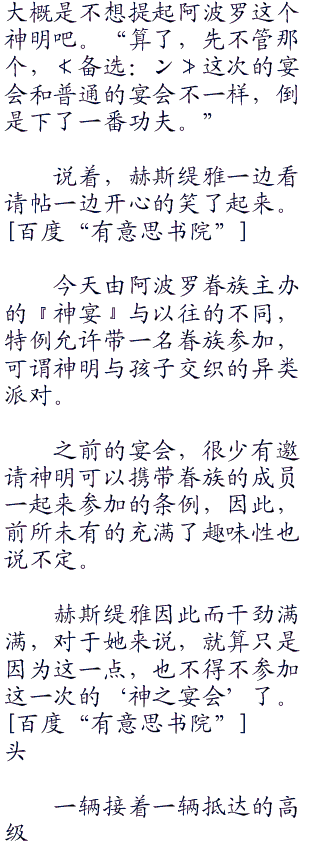 大概是不想提起阿波罗这个
神明吧。“算了，先不管那
个，≮备选：ン≯这次的宴
会和普通的宴会不一样，倒
是下了一番功夫。”
　　说着，赫斯缇雅一边看
请帖一边开心的笑了起来。
[百度“有意思书院”]
　　今天由阿波罗眷族主办
的『神宴』与以往的不同，
特例允许带一名眷族参加，
可谓神明与孩子交织的异类
派对。
　　之前的宴会，很少有邀
请神明可以携带眷族的成员
一起来参加的条例，因此，
前所未有的充满了趣味性也
说不定。
　　赫斯缇雅因此而干劲满
满，对于她来说，就算只是
因为这一点，也不得不参加
这一次的‘神之宴会’了。
[百度“有意思书院”]
头
　　一辆接着一辆抵达的高
级